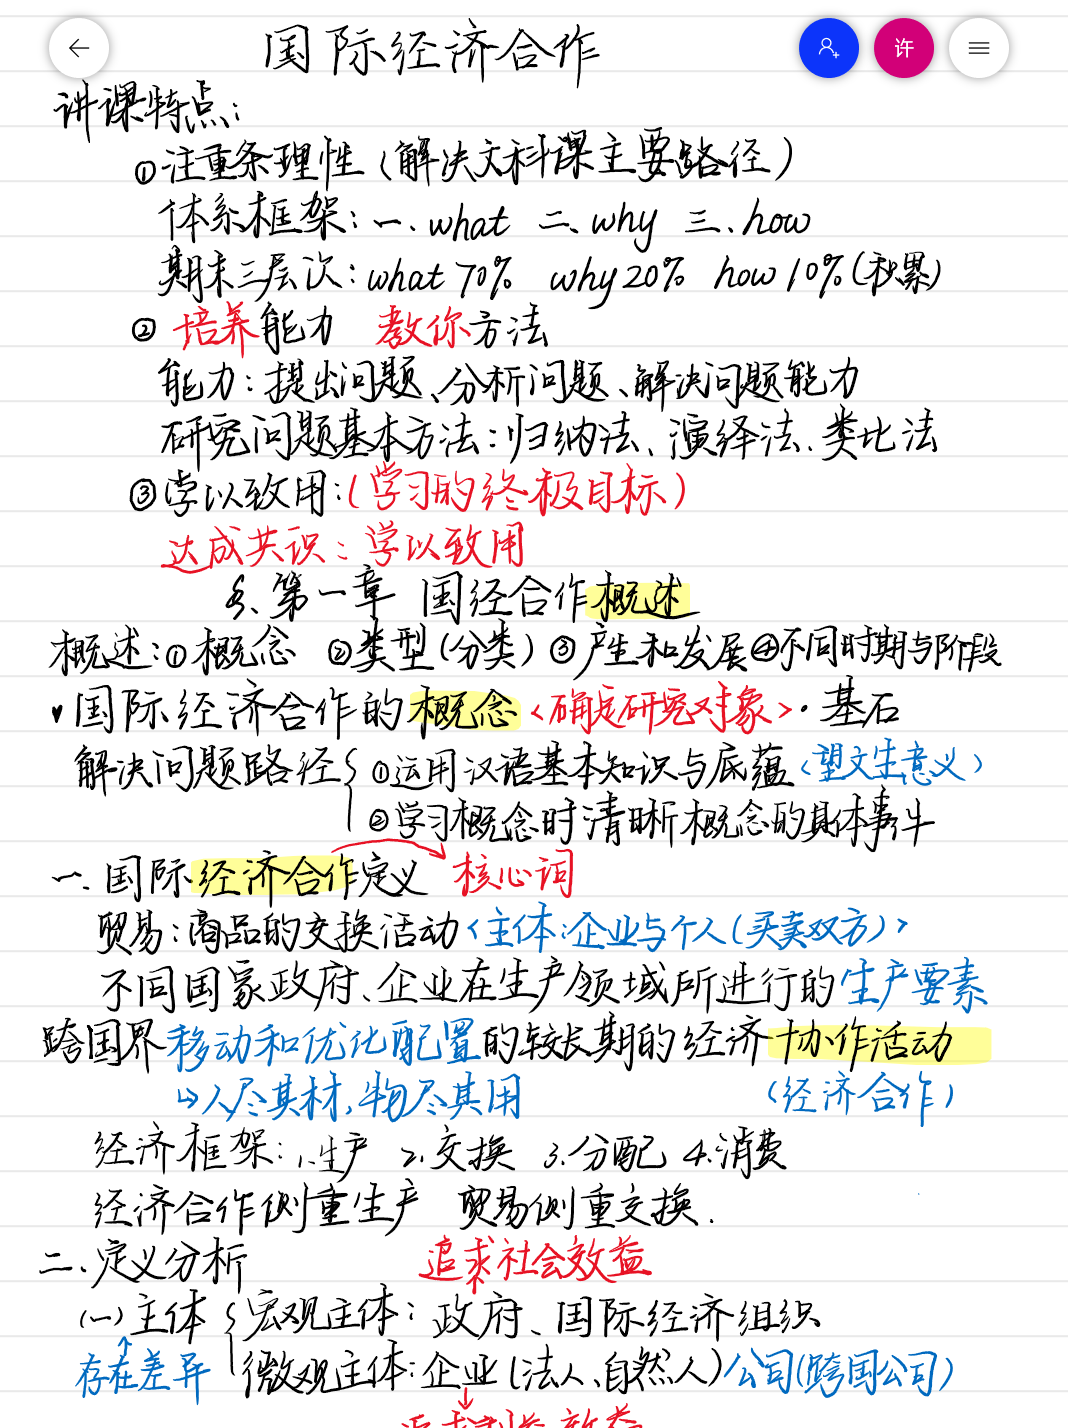 国际经济合作
许
讲课特点:
①注重条理性(解决文科课主要路径)
体系框架:一.what 二.why 三.how
期末三层次:what 70% why 20% how 10%(积累)
② 培养能力 教你方法
能力:提出问题、分析问题、解决问题能力
研究问题基本方法:归纳法、演绎法、类比法
③学以致用:(学习的终极目标)
达成共识:学以致用
第一章 国经合作概述
概述:①概念 ②类型(分类) ③产生和发展④不同时期与阶段
国际经济合作的概念<确定研究对象>·基石
解决问题路径{①运用汉语基本知识与底蕴(望文生意义)
②学习概念时清晰概念的具体事件
一.国际经济合作定义 核心词
贸易:商品的交换活动<主体:企业与个人(买卖双方)>
不同国家政府、企业在生产领域所进行的生产要素
跨国界移动和优化配置的较长期的经济协作活动
↳人尽其材,物尽其用 (经济合作)
经济框架:1.生产 2.交换 3.分配 4.消费
经济合作侧重生产 贸易侧重交换.
二.定义分析 追求社会效益
(一)主体{宏观主体:政府、国际经济组织
存在差异 微观主体:企业(法人、自然人)公司(跨国公司)